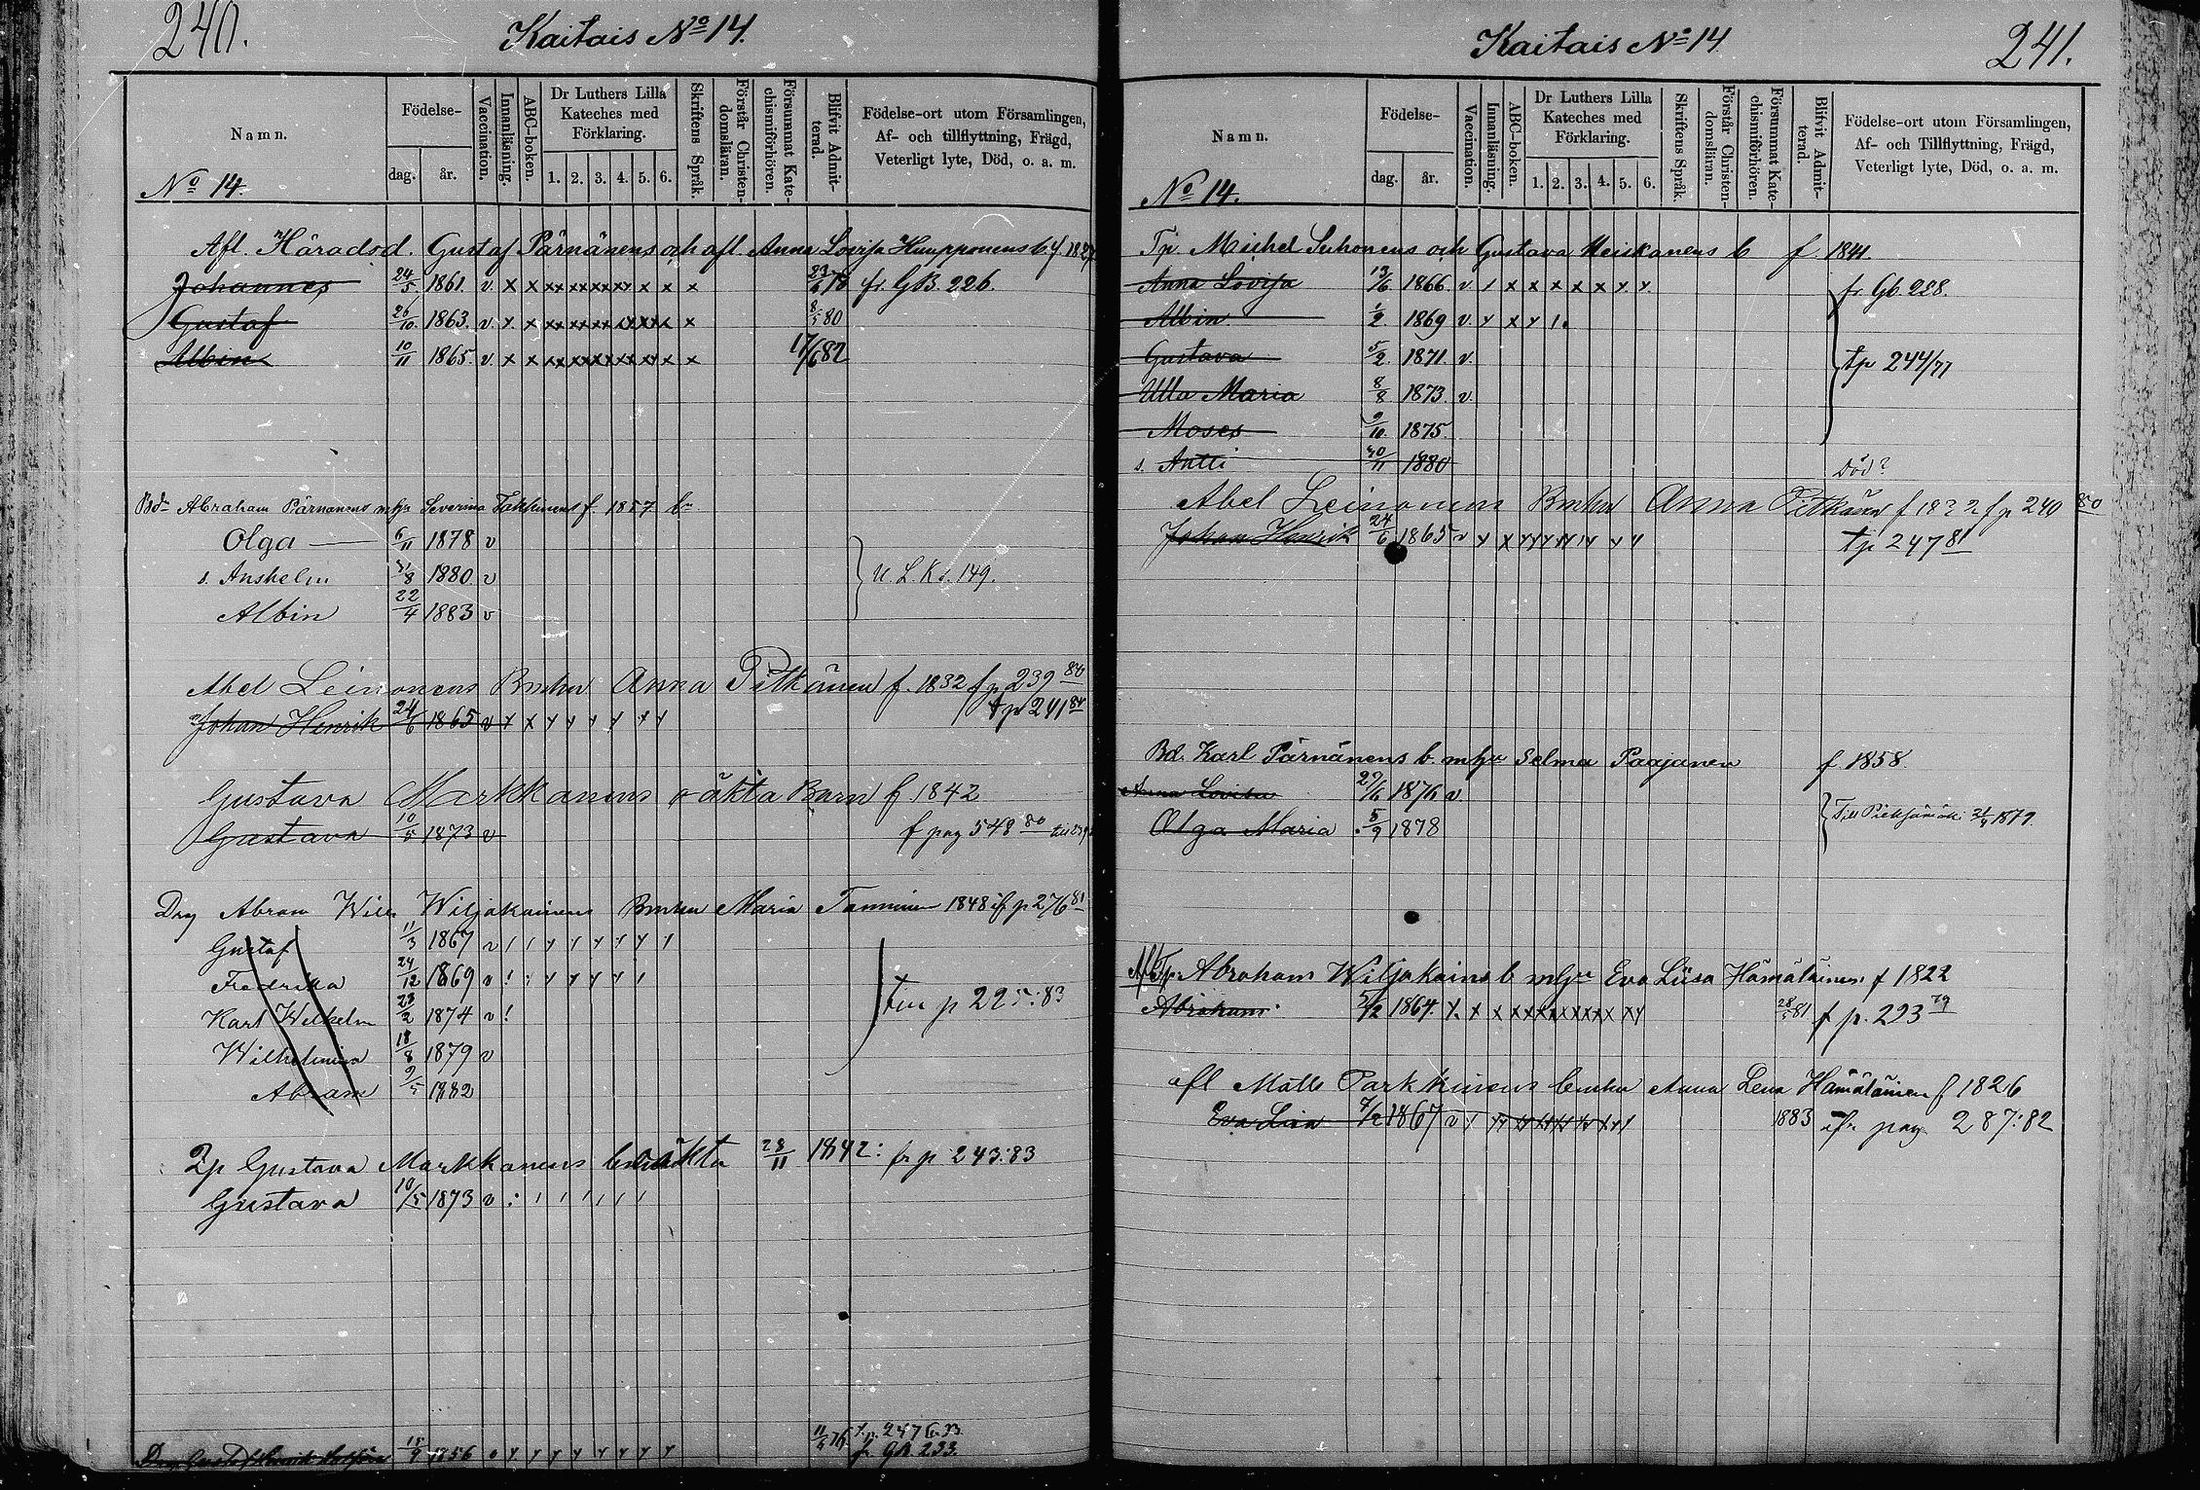 240.
Kaitais No 14.
Namn.
Födelse-
dag.
år.
Vaccination.
Innanläsning.
ABC-boken.
Dr Luthers Lilla Kateches med Förklaring.
1. 2. 3. 4. 5. 6.
Skriftens Språk.
Förstår Christendomsläran.
Försummat Katechismiförhören.
Blifvit Admitterad.
Födelse-ort utom Församlingen,
Af- och tillflyttning, Frägd,
Veterligt lyte, Död, o. a. m.
No 14.
Afl. Häradsd. Gustaf Pärnänens och afl. Anna Lovisa Humpponens b. f. 1827
Johannes 24/5 1861. v. x x xx xx xx xx x x x 23/6 78 fr. GB. 226.
Gustaf 26/10 1863. v. x x x 8/5 80
Albin 10/11 1865. v. x x x 17/6 82
Bd Abraham Pärnänens mhu Severina f. 1857 bn
Olga 6/11 1878 v
s. Anshelm 31/8 1880 v U. L. K. s. 149.
Albin 22/4 1883 v
Abel Leinonens Bmhu Anna Pitkänen f. 1832 fp 239 80
Johan Henrik 24/6 1865 v x x y y y y y y tp 241 84
Gustava Markkanens oäkta Barn f. 1842
Gustava 10/5 1873 v f pag 548 80
Drg Abram Wilh Wiljakainens Bmhu Maria Tanninen 1848 if p 276 81
Gustaf 11/3 1867 v
Fredrika 24/12 1869 v
Karl Wilhelm 23/2 1874 v !
Wilhelmina 18/8 1879 v
Abram 9/5 1882
p 225:83
Gustava Markkanens oäkta 28/11 1842: fr p 243:83
Gustava 10/5 1873 v
15/9 1856 11/5 76 fr GB. 233.
Kaitais No 14
241.
Namn.
Födelse-
dag.
år.
Vaccination.
Innanläsning.
ABC-boken.
Dr Luthers Lilla Kateches med Förklaring.
1. 2. 3. 4. 5. 6.
Skriftens Språk.
Förstår Christendomsläran.
Försummat Katechismiförhören.
Blifvit Admitterad.
Födelse-ort utom Församlingen,
Af- och Tillflyttning, Frägd,
Veterligt lyte, Död, o. a. m.
No 14.
Tp. Michel Suhonens och Gustava Heiskanens b f. 1841.
Anna Lovisa 13/6 1866. v / x x x x x y y fr. Gb 228.
Albin 1/2 1869 v. y x y 1.
Gustava 5/2 1871. v. tp 244/77
Ulla Maria 8/8 1873. v.
Moses 9/10 1875.
s. Antti 30/11 1880 Död?
Abel Leinonens Bmhu Anna Pitkänen f 1832 f p 240 80
Johan Henrik 24/6 1865 v tp 247 81
Bd. Karl Pärnänens b. mhu Selma Paajanen f. 1858.
Anna Lovisa 29/6 1876 v
Olga Maria 5/9 1878 Till Pieksämäki 1879.
Tp. Abraham Wiljakains b mhu Eva Liisa Hämäläinen f 1822
Abraham 5/2 1864. 28/5 81 f p. 223 79
afl Matts Parkkinens bmhu Anna Lena Hämäläinen f 1826
Eva Lisa 7/2 1867 v 1883 ifr pag 287:82